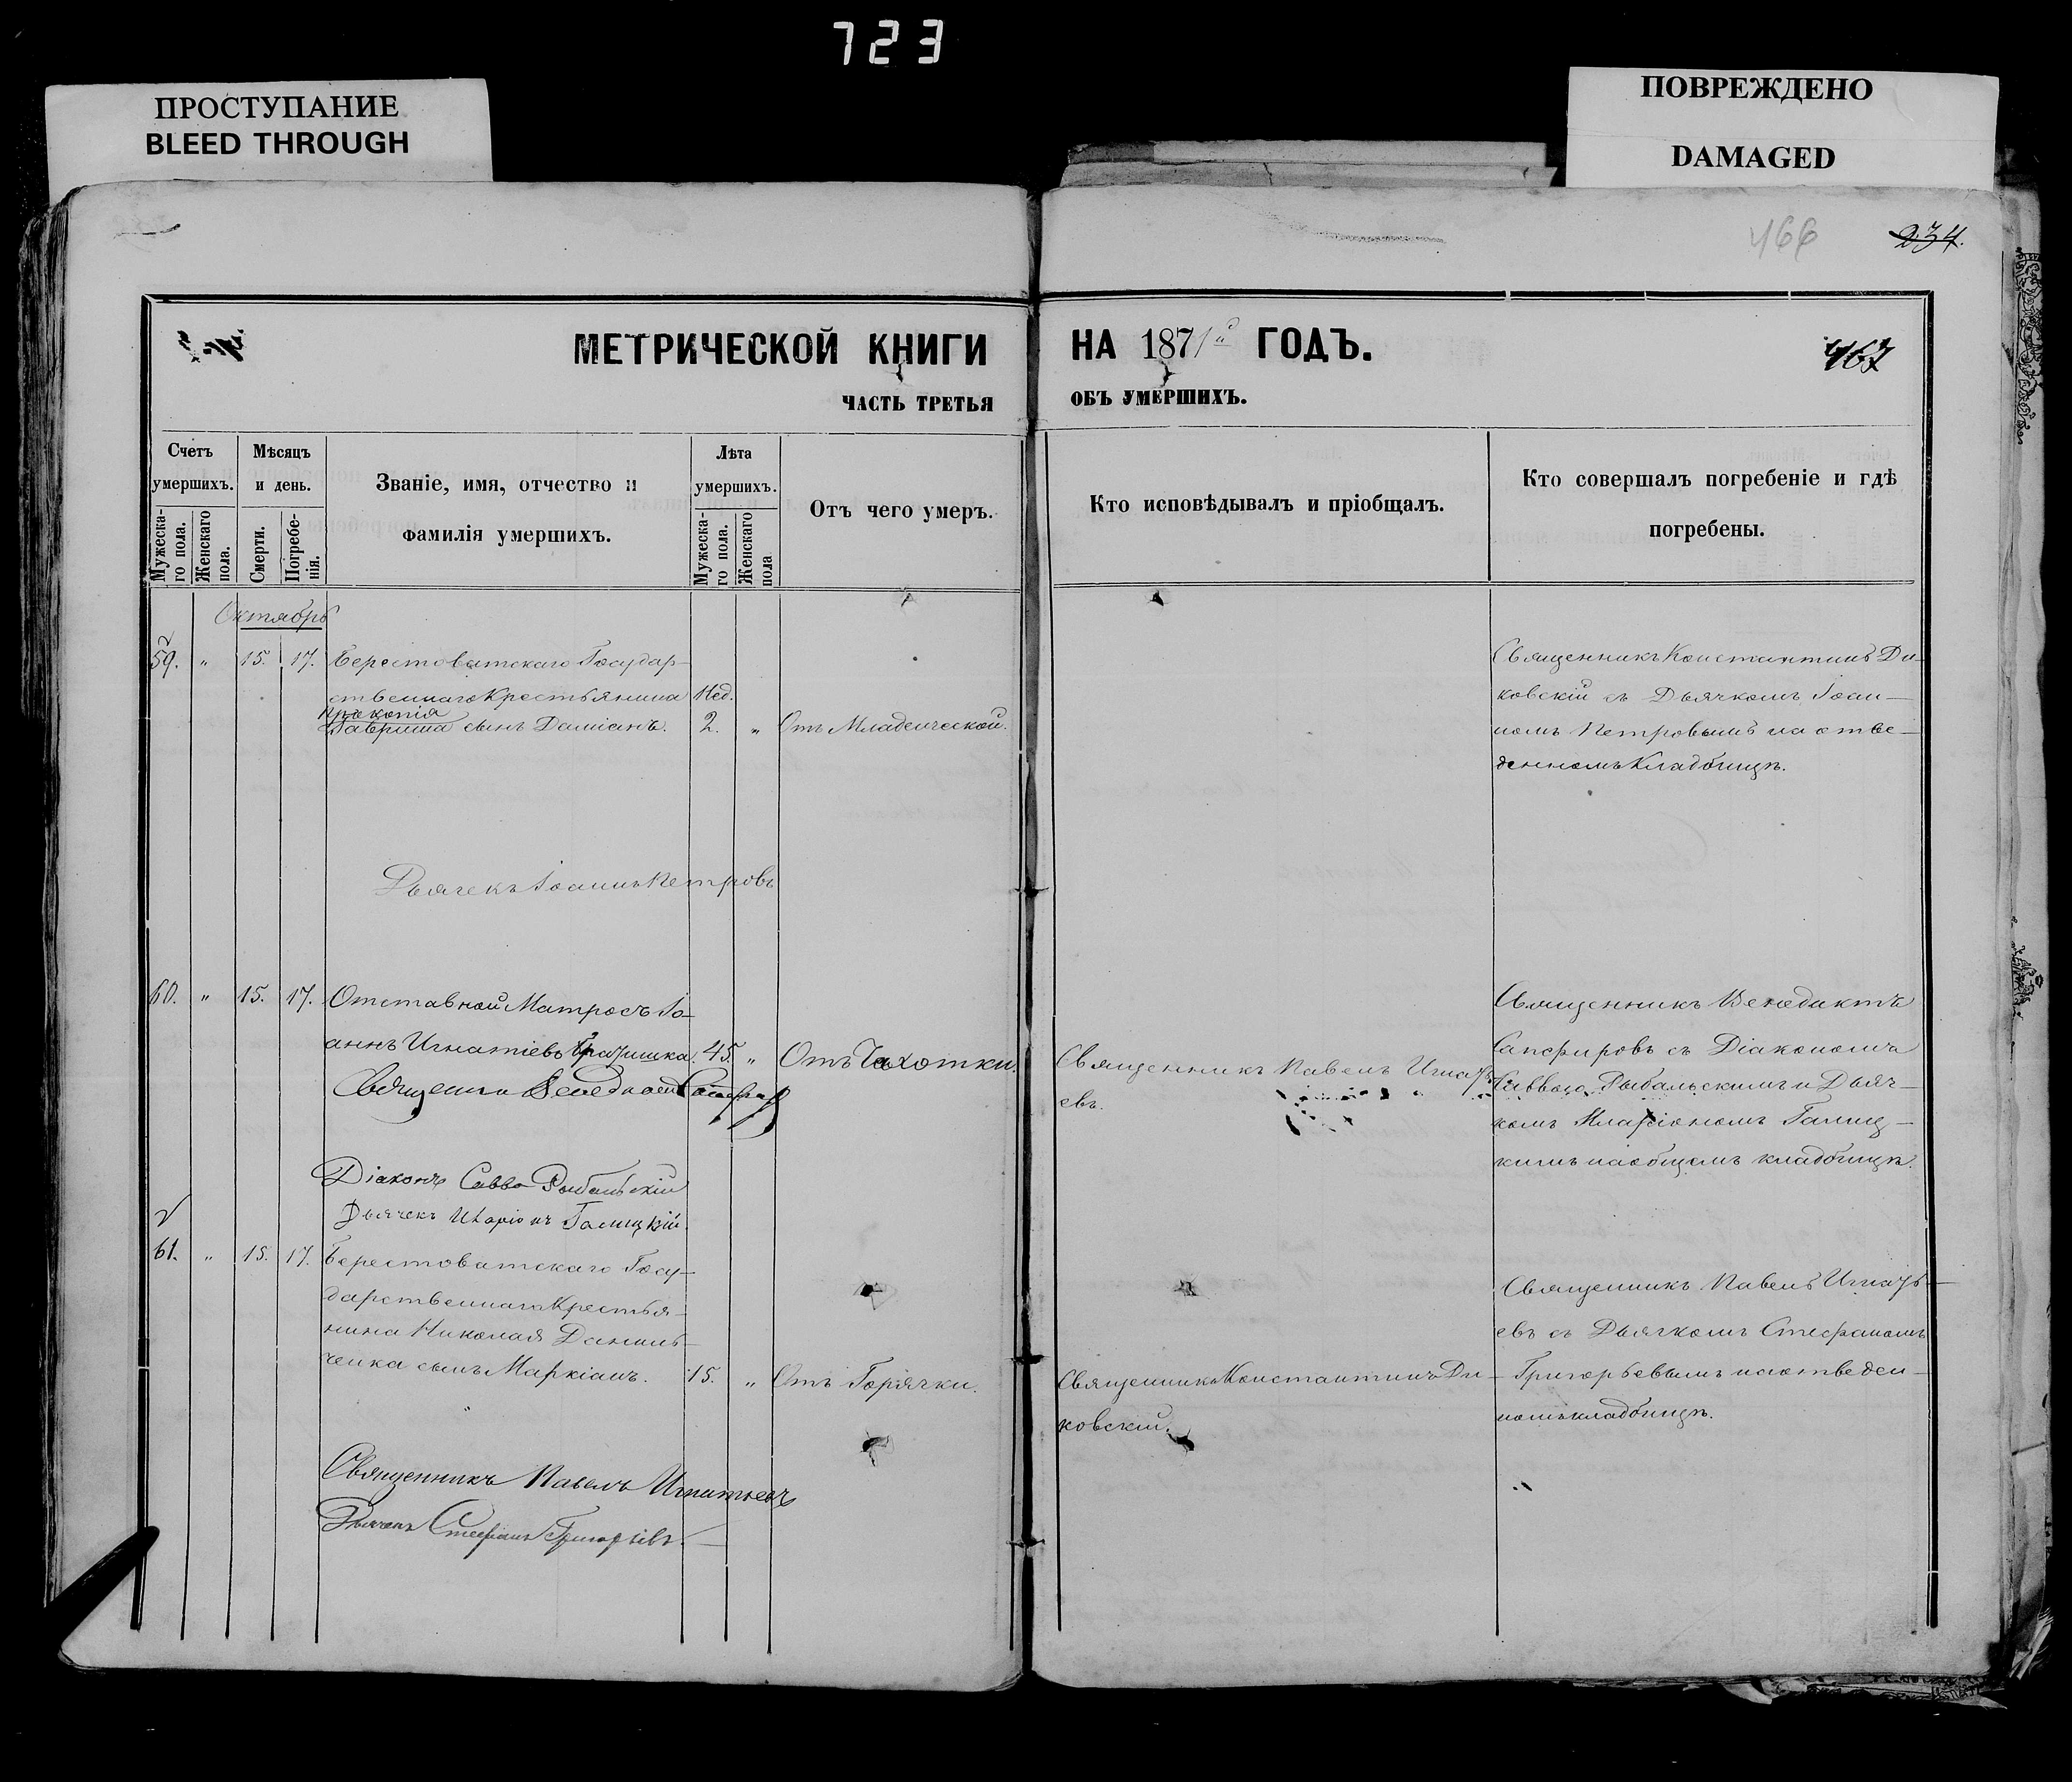 723
ПРОСТУПАНИЕ
BLEED THROUGH
ПОВРЕЖДЕНО
DAMAGED
466
234.
МЕТРИЧЕСКОЙ КНИГИ
НА 1871й ГОДЪ.
467
ЧАСТЬ ТРЕТЬЯ
ОБЪ УМЕРШИХЪ.
Счетъ умершихъ.
Мужеска-го пола.
Женскаго пола.
Мѣсяцъ и день.
Смерти.
Погребе-нія.
Званіе, имя, отчество и
фамилія умершихъ.
Лѣта умершихъ.
Мужеска-го пола.
Женскаго пола
Отъ чего умеръ.
Кто исповѣдывалъ и пріобщалъ.
Кто совершалъ погребеніе и гдѣ
погребены.
Октябрь
59. " 15. 17. Берестоватскаго Государ-
ственнаго Крестьянина
Прокопія
Гавриша сынъ Даміанъ.
Нед.
2. " Отъ Младенческой.
Священникъ Константинъ Ди-
ковскій съ Дьячкомъ Іоан-
номъ Петровымъ на отве-
денномъ Кладбищѣ.
Дьячекъ Іоаннъ Петровъ
60. " 15. 17. Отставной Матросъ Іо-
аннъ Игнатіевъ
45. " Отъ Чахотки.
Священникъ Павелъ Игнать-
евъ.
Священникъ Венедиктъ
Сапфировъ съ Діакономъ
Саввою Рыбальскимъ и Дьяч-
комъ Иларіономъ Галиц-
кимъ на общемъ кладбищѣ.
Діаконъ Савва Рыбальскій
Дьячекъ Иларіонъ Галицкій.
61. " 15. 17. Берестоватскаго Госу-
дарственнаго Крестья-
нина Николая Даниль-
ченка сынъ Маркіанъ.
15. " Отъ Горячки.
Священникъ Константинъ Ди-
ковскій.
Священникъ Павелъ Игнать-
евъ съ Дьячкомъ Стефаномъ
Григорьевымъ на отведен-
номъ кладбищѣ.
Священникъ Павелъ Игнатьевъ
Дьячекъ Стефанъ Григорьевъ.